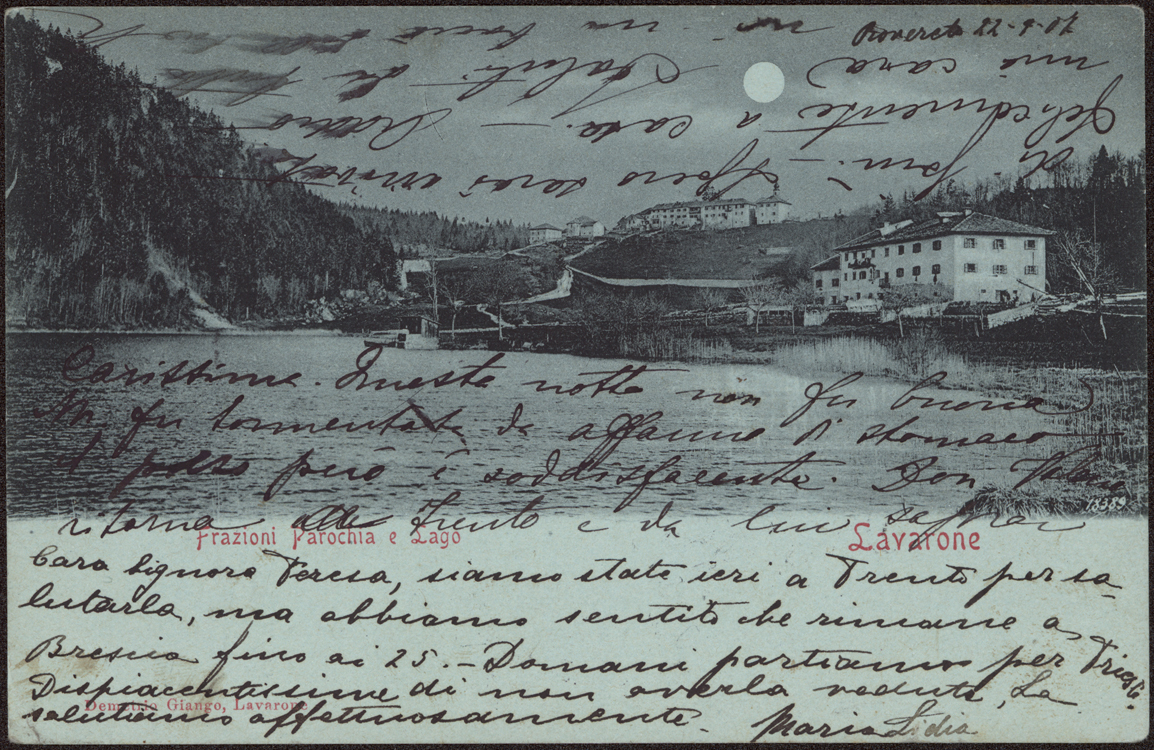 Rovereto 22-9-07
Spero sarai arrivata
felicemente a casa. —
mia cara Saluti da
un bacio
Carissima. Questa notte non fu buona
Mi fu tormentata da affanno di stomaco
il polso però è soddisfacente. Don
ritorna Trento e da lui saprai
Frazioni Parochia e Lago
Lavarone
16369
Cara Signora Teresa, siamo state ieri a Trento per sa-
lutarla, ma abbiamo sentito che rimane a
Brescia fino ai 25. - Domani partiamo per Trieste.
Dispiacentissime di non averla veduta, La
Demetrio Giango, Lavarone
salutiamo affettuosamente. Maria Lidia